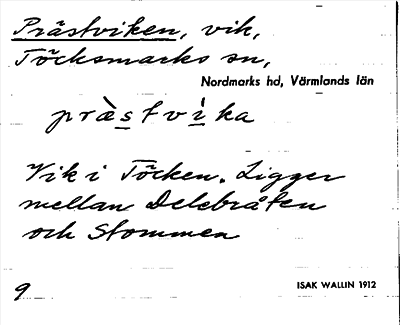 Prästviken, vik,
Töcksmarks sn,
Nordmarks hd, Värmlands län
præ̀stvìka
Vik i Töcken. Ligger
mellan Delebråten
och Stommen
9
ISAK WALLIN 1912